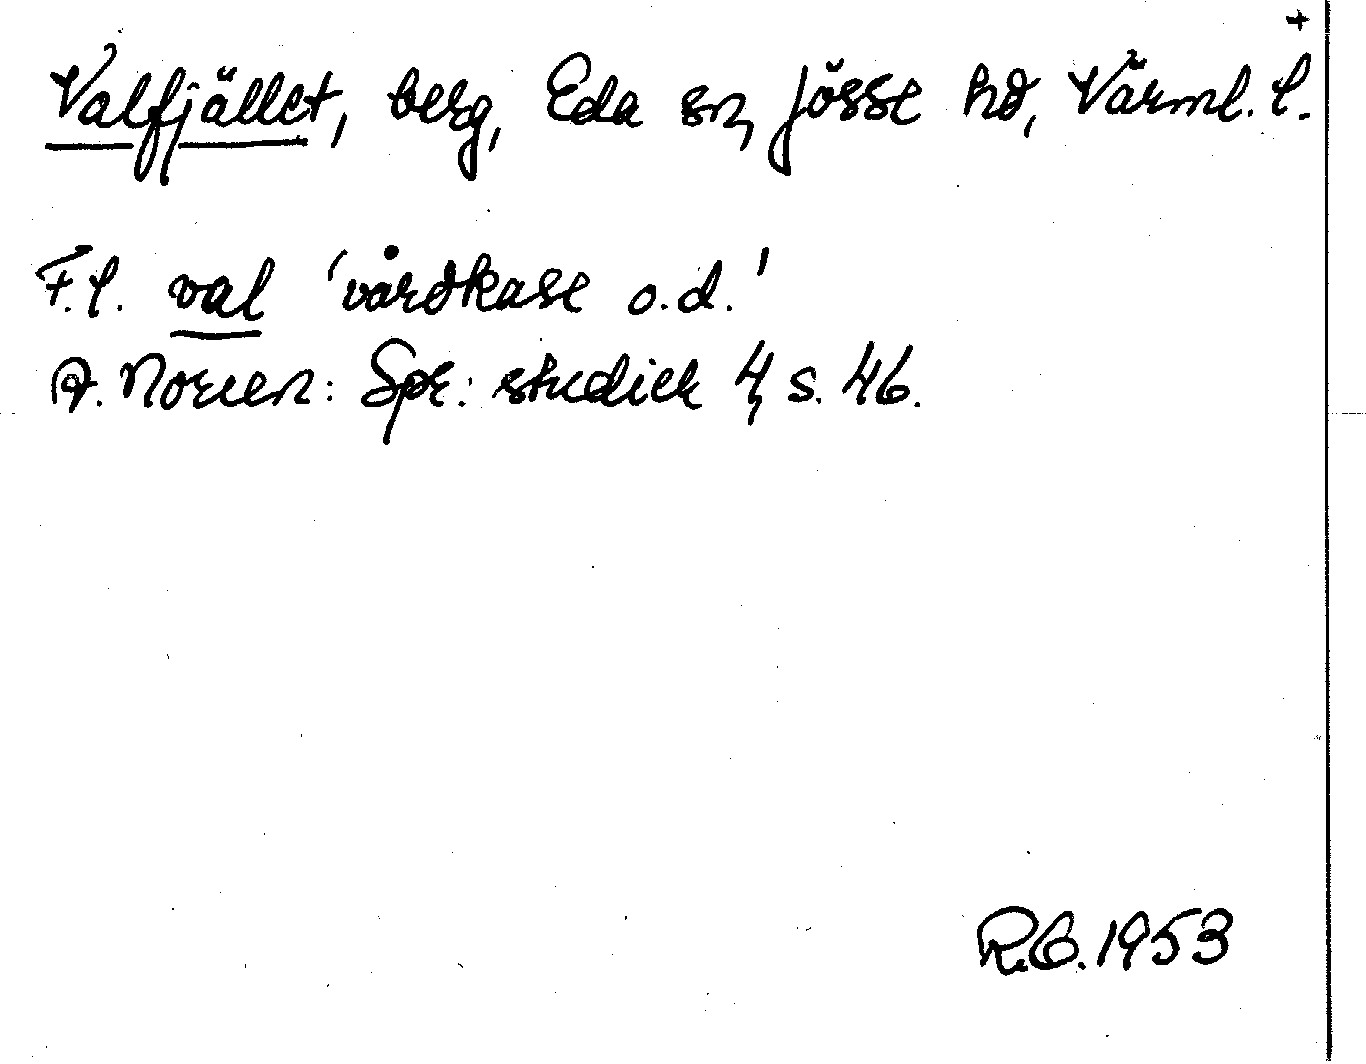 +
Valfjället, berg, Eda sn, Jösse hd, Värml. l.
F.l. val 'vårdkase o.d.'
A. Noreen: Spr. studier 4, s. 46.
R.C. 1953